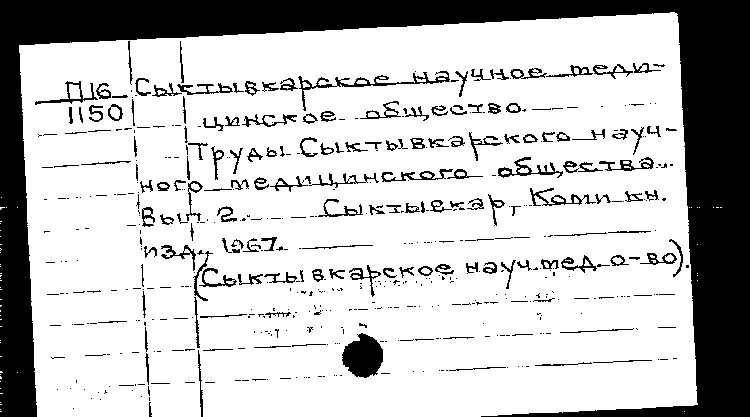 П16 Сыктывкарское научное меди-
1150 цинское общество.
Труды Сыктывкарского науч-
ного медицинского общества..
Вып. 2. Сыктывкар, Коми кн.
изд., 1967.
(Сыктывкарское науч. мед. о-во).